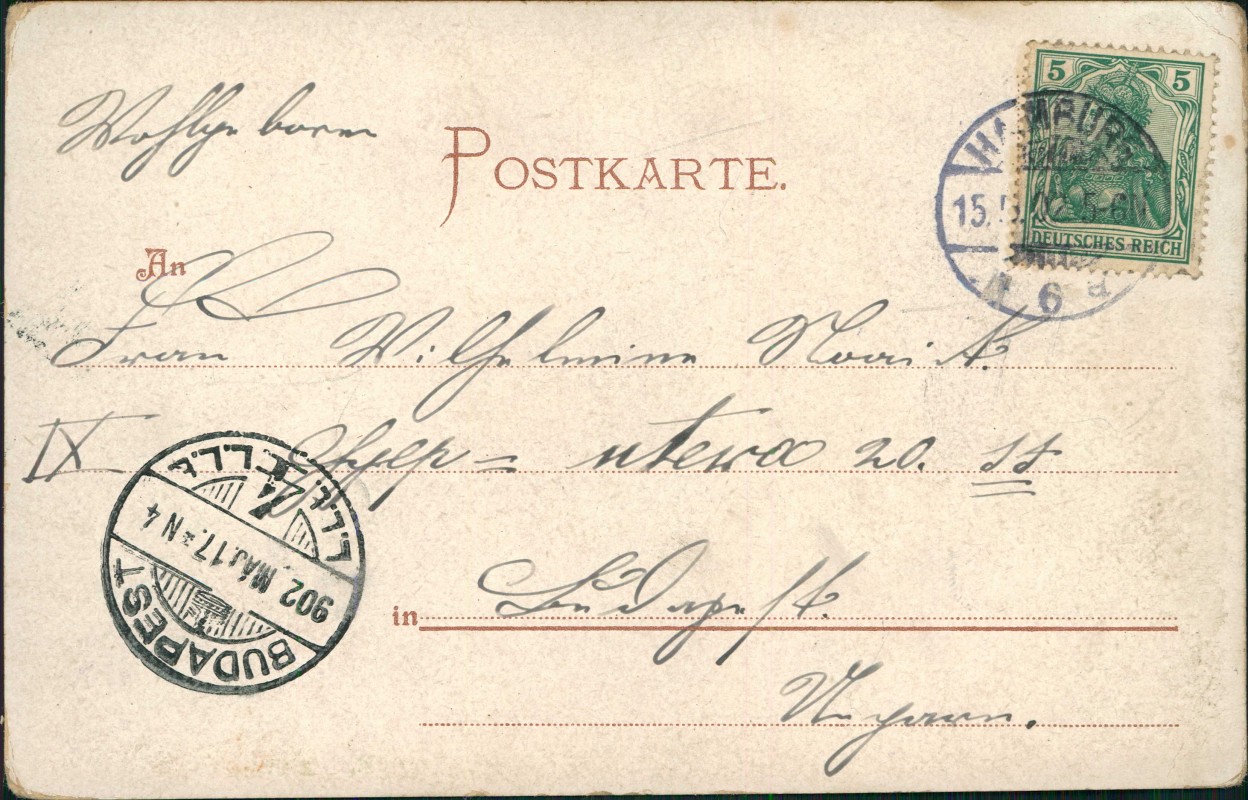 Wohlgeboren
POSTKARTE.
5 5
HAMBURG
15.5.02. 5-6N
DEUTSCHES REICH
6 a
An
Frau Wilhelmine
IX utcza 20.
L.L.
4
902 MÁJ. 17. N 4
BUDAPEST
in Budapest.
Ungarn.